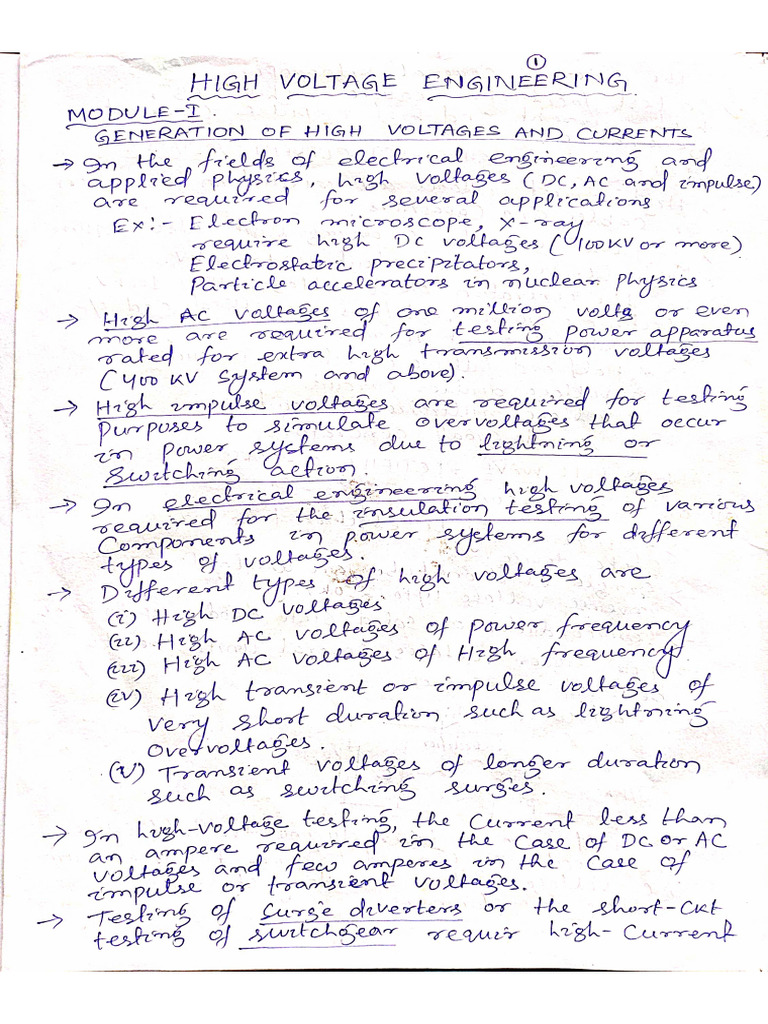 1
HIGH VOLTAGE ENGINEERING
MODULE-I.
GENERATION OF HIGH VOLTAGES AND CURRENTS
→ In the fields of electrical engineering and
applied physics, high voltages (DC, AC and impulse)
are required for several applications
Ex:- Electron microscope, x-ray
require high DC voltages (100KV or more)
Electrostatic precipitators,
Particle accelerators in nuclear physics
→ High AC voltages of one million volts or even
more are required for testing power apparatus
rated for extra high transmission voltages
(400 KV system and above).
→ High impulse voltages are required for testing
purposes to simulate overvoltages that occur
in power systems due to lightning or
switching action.
→ In electrical engineering high voltages
required for the insulation testing of various
Components in power systems for different
types of voltages.
→ Different types of high voltages are
(i) High DC voltages
(ii) High AC voltages of power frequency
(iii) High AC voltages of High frequency
(iv) High transient or impulse voltages of
very short duration such as lightning
overvoltages.
(v) Transient voltages of longer duration
such as switching surges.
→ In high-voltage testing, the current less than
an ampere required in the case of DC or AC
voltages and few amperes in the case of
impulse or transient voltages.
→ Testing of Surge diverters or the short-ckt
testing of switchgear requir high-current